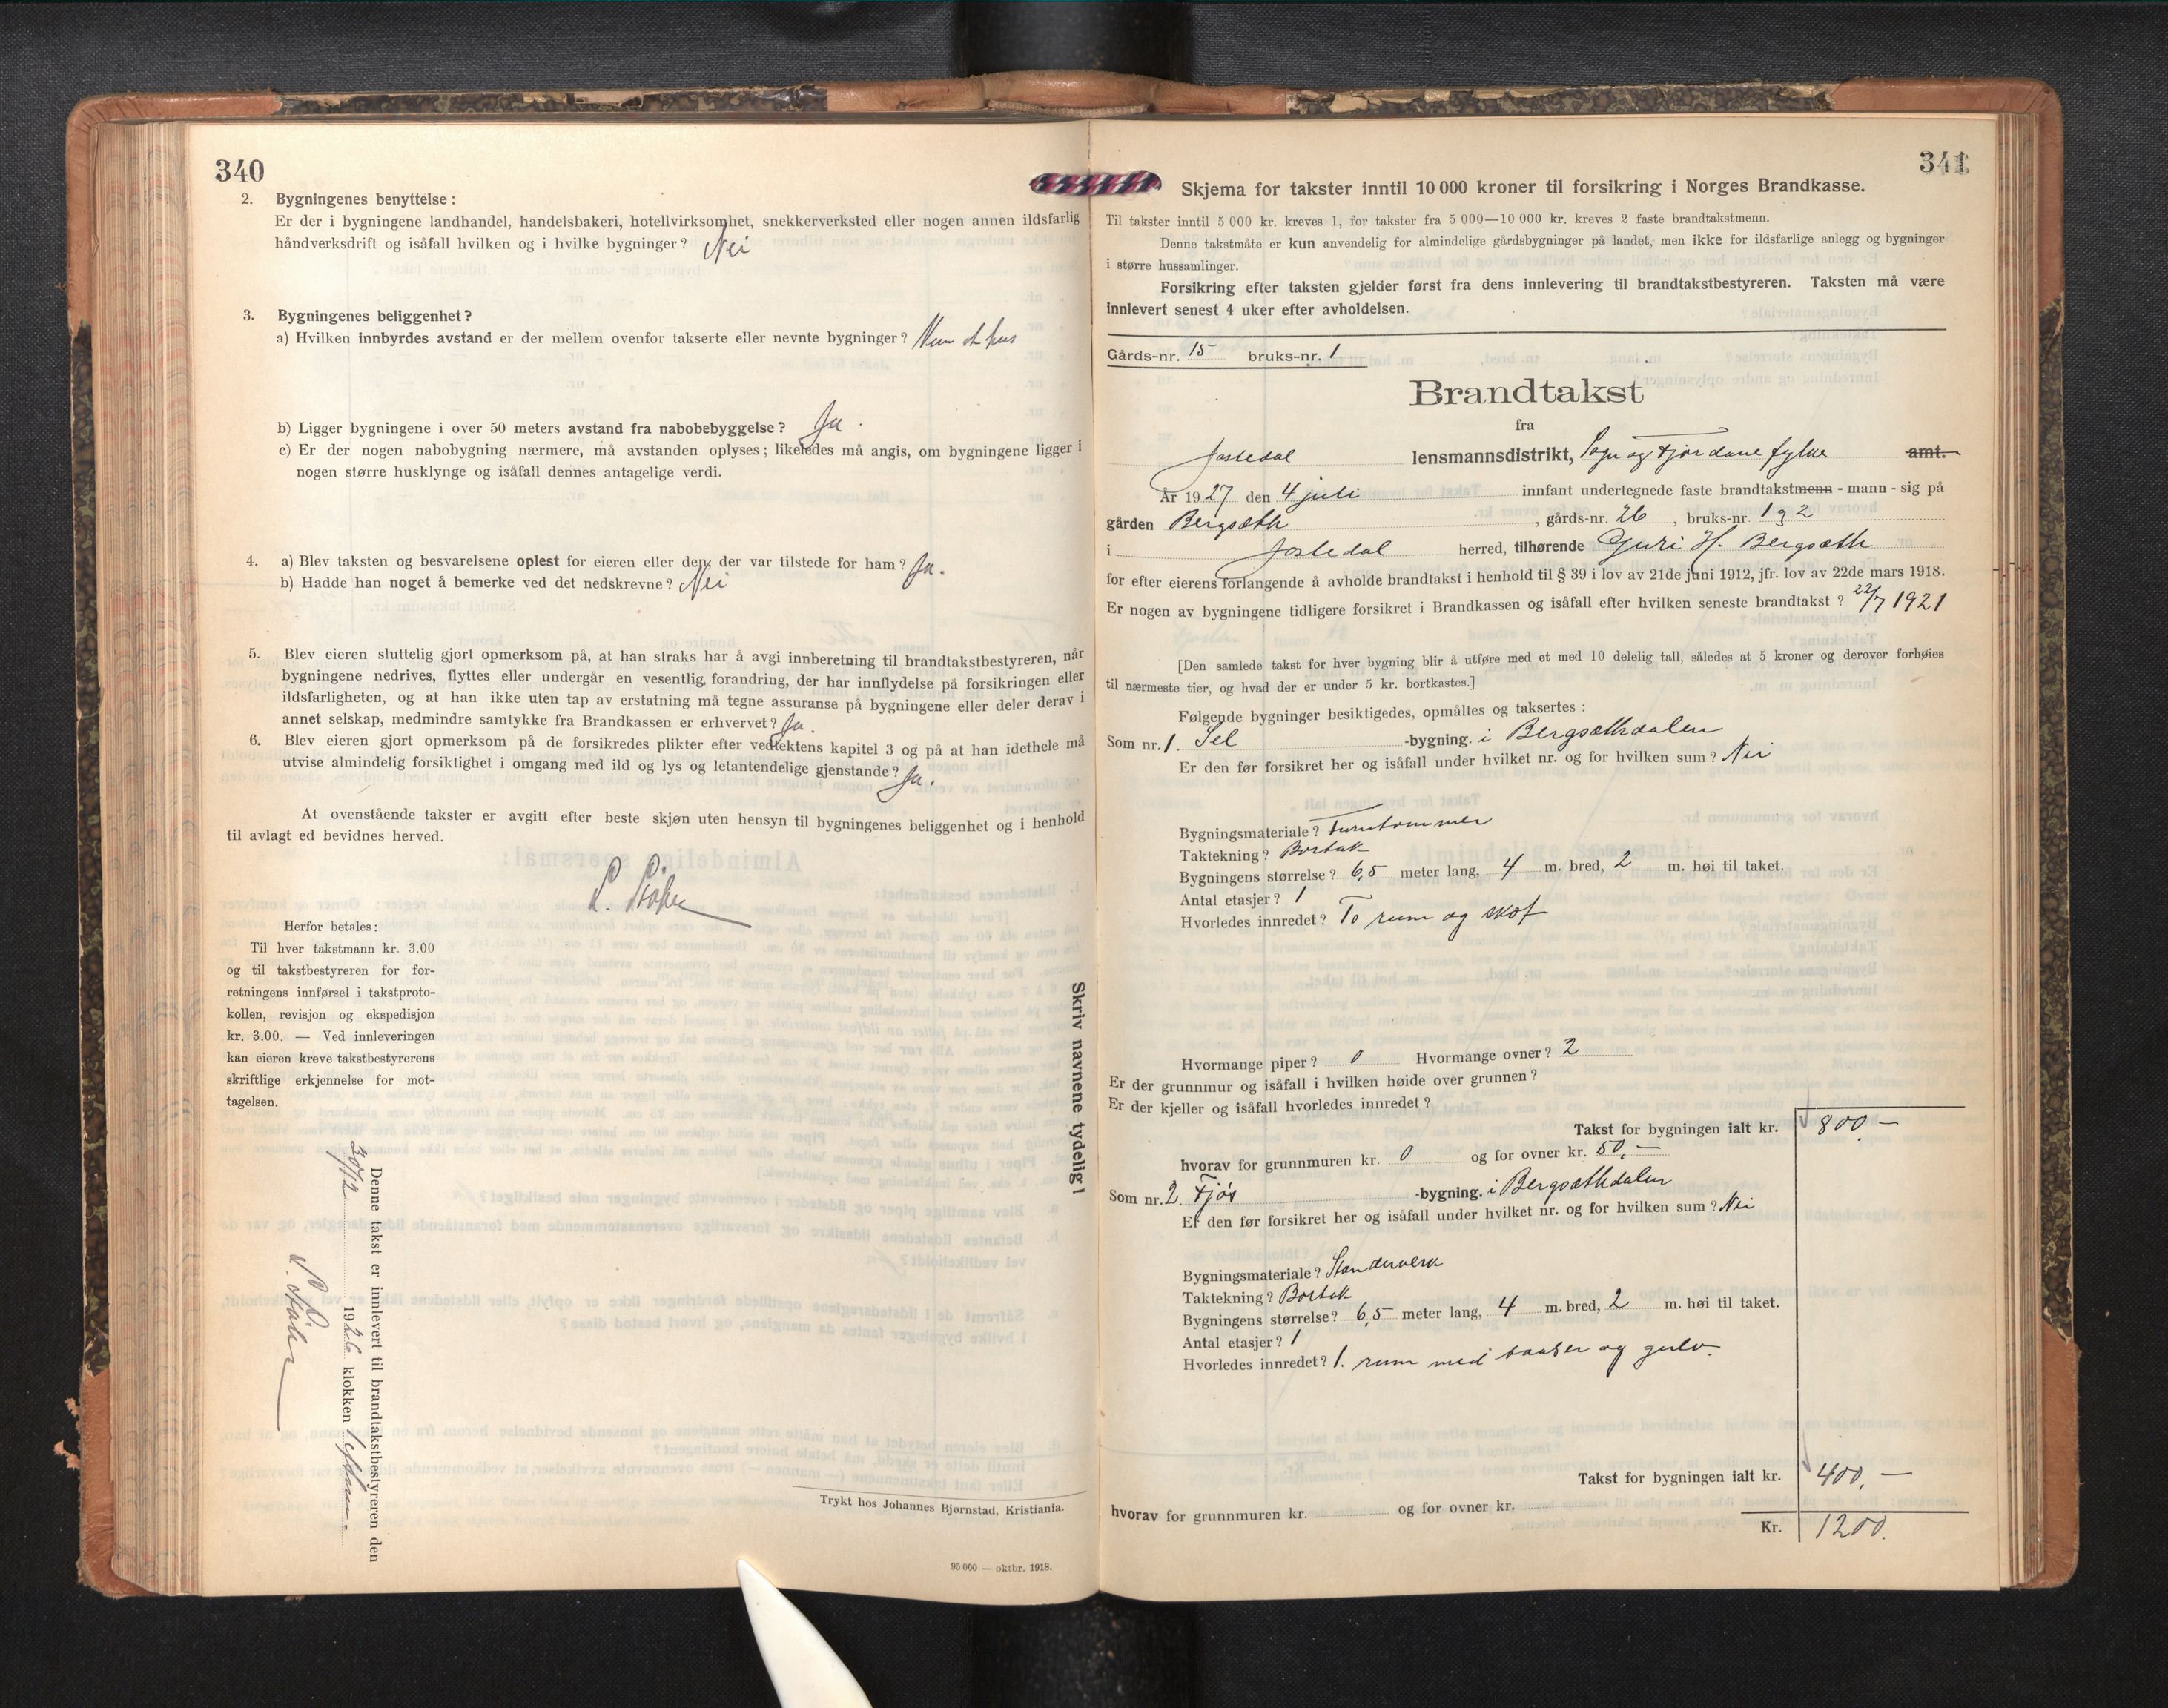 340
2. Bygningenes benyttelse :
Er der i bygningene landhandel, handelsbakeri, hotellvirksomhet, snekkerverksted eller nogen annen ildsfarlig
håndverksdrift og isåfall hvilken og i hvilke bygninger? Nei
3. Bygningenes beliggenhet?
a) Hvilken innbyrdes avstand er der mellem ovenfor takserte eller nevnte bygninger? Kun et hus
b) Ligger bygningene i over 50 meters avstand fra nabobebyggelse? Ja.
c) Er der nogen nabobygning nærmere, må avstanden oplyses; likeledes må angis, om bygningene ligger i
nogen større husklynge og isåfall dennes antagelige verdi.
4. a) Blev taksten og besvarelsene oplest for eieren eller den, der var tilstede for ham? Ja.
b) Hadde han noget å bemerke ved det nedskrevne? Nei
5. Blev eieren sluttelig gjort opmerksom på, at han straks har å avgi innberetning til brandtakstbestyreren, når
bygningene nedrives, flyttes eller undergår en vesentlig forandring, der har innflydelse på forsikringen eller
ildsfarligheten, og at han ikke uten tap av erstatning må tegne assuranse på bygningene eller deler derav i
annet selskap, medmindre samtykke fra Brandkassen er erhvervet? Ja.
6. Blev eieren gjort opmerksom på de forsikredes plikter efter vedtektens kapitel 3 og på at han idethele må
utvise almindelig forsiktighet i omgang med ild og lys og letantendelige gjenstande? Ja.
At ovenstående takster er avgitt efter beste skjøn uten hensyn til bygningenes beliggenhet og i henhold
til avlagt ed bevidnes herved.
Herfor betales:
Til hver takstmann kr. 3.00
og til takstbestyreren for for-
retningens innførsel i takstproto-
kollen, revisjon og ekspedisjon
kr. 3.00. — Ved innleveringen
kan eieren kreve takstbestyrerens
skriftlige erkjennelse for mot-
tagelsen.
Denne takst er innlevert til brandtakstbestyreren den
30/12 1926 klokken
Skriv navnene tydelig!
Trykt hos Johannes Bjørnstad, Kristiania.
95 000 — oktbr. 1918.
341
Skjema for takster inntil 10 000 kroner til forsikring i Norges Brandkasse.
Til takster inntil 5 000 kr. kreves 1, for takster fra 5 000—10 000 kr. kreves 2 faste brandtakstmenn.
Denne takstmåte er kun anvendelig for almindelige gårdsbygninger på landet, men ikke for ildsfarlige anlegg og bygninger
i større hussamlinger.
Forsikring efter taksten gjelder først fra dens innlevering til brandtakstbestyreren. Taksten må være
innlevert senest 4 uker efter avholdelsen.
Gårds-nr. 15 bruks-nr. 1
Brandtakst
fra
Jostedal lensmannsdistrikt, Sogn og Fjordane fylke amt.
År 1927 den 4 juli innfant undertegnede faste brandtakstmenn - mann - sig på
gården Bergsæth, gårds-nr. 26, bruks-nr. 1 g 2
i Jostedal herred, tilhørende Guri H. Bergsæth
for efter eierens forlangende å avholde brandtakst i henhold til § 39 i lov av 21de juni 1912, jfr. lov av 22de mars 1918.
Er nogen av bygningene tidligere forsikret i Brandkassen og isåfall efter hvilken seneste brandtakst? 22/7 1921
[Den samlede takst for hver bygning blir å utføre med et med 10 delelig tall, således at 5 kroner og derover forhøies
til nærmeste tier, og hvad der er under 5 kr. bortkastes.]
Følgende bygninger besiktigedes, opmåltes og taksertes :
Som nr. 1. Sel -bygning. i Bergsæthdalen
Er den før forsikret her og isåfall under hvilket nr. og for hvilken sum? Nei
Bygningsmateriale? Furutømmer
Taktekning? Bortak
Bygningens størrelse? 6,5 meter lang, 4 m. bred, 2 m. høi til taket.
Antal etasjer? 1
Hvorledes innredet? To rum og skot
Hvormange piper? 0 Hvormange ovner? 2
Er der grunnmur og isåfall i hvilken høide over grunnen?
Er der kjeller og isåfall hvorledes innredet?
Takst for bygningen ialt kr. 800.—
hvorav for grunnmuren kr. 0 og for ovner kr. 50,—
Som nr. 2 Fjøs -bygning. i Bergsæthdalen
Er den før forsikret her og isåfall under hvilket nr. og for hvilken sum? Nei
Bygningsmateriale? Standerverk
Taktekning? Bortak
Bygningens størrelse? 6,5 meter lang, 4 m. bred, 2 m. høi til taket.
Antal etasjer? 1
Hvorledes innredet? 1. rum med baaser og gulv.
Takst for bygningen ialt kr. 400,—
hvorav for grunnmuren kr. og for ovner kr.
Kr. 1200.